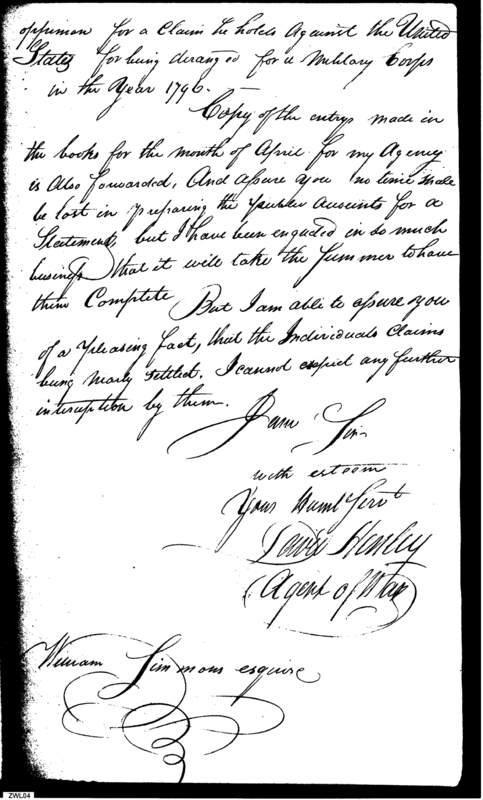 oppinion for a Claim he holds Against the United
States for being deranged for a Military Corps
in the Year 1796.
Copy of the entrys made in
the books for the month of April for my Agency
is Also forwarded, And assure you no time shall
be lost in preparing the publick Accounts for a
Statement, but I have been engaded in so much
business that it will take the Summer to have
them Complete. But I am able to assure you
of a pleasing fact, that the Individuals Claims
being nearly settled. I cannot expect any further
interception by them.
I am Sir
with esteem
Your Humb Servt
David Henley
Agent of War
William Simmons esquire
ZWL04